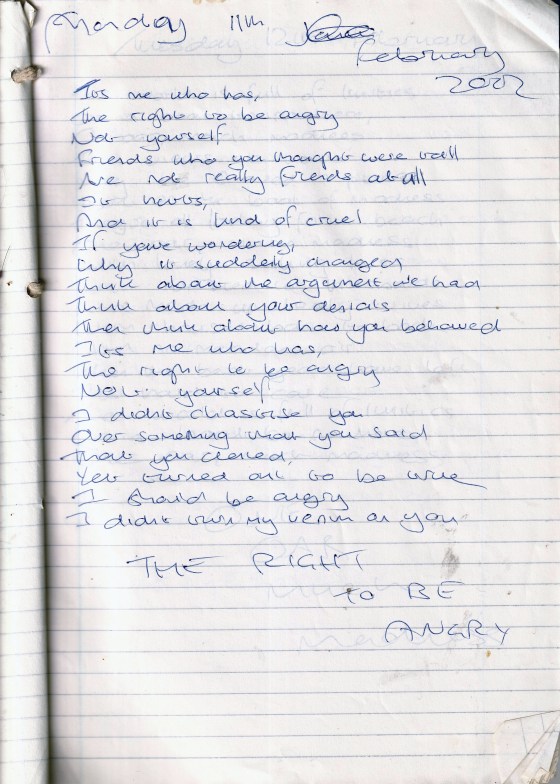 Monday 11th
February
2002
Its me who has,
The right to be angry
Not yourself
Friends who you thought were
Are not really friends at all
It hurts,
And it is kind of cruel
If youre wondering,
Why it suddenly changed
Think about the argument we had
Think about your denials
Then think about how you behaved
Its me who has,
The right to be angry
Not yourself
I didnt chastise you
Over something that you said
That you denied,
Yet turned out to be true
I should be angry
I didnt turn my venim on you
THE RIGHT
TO BE
ANGRY